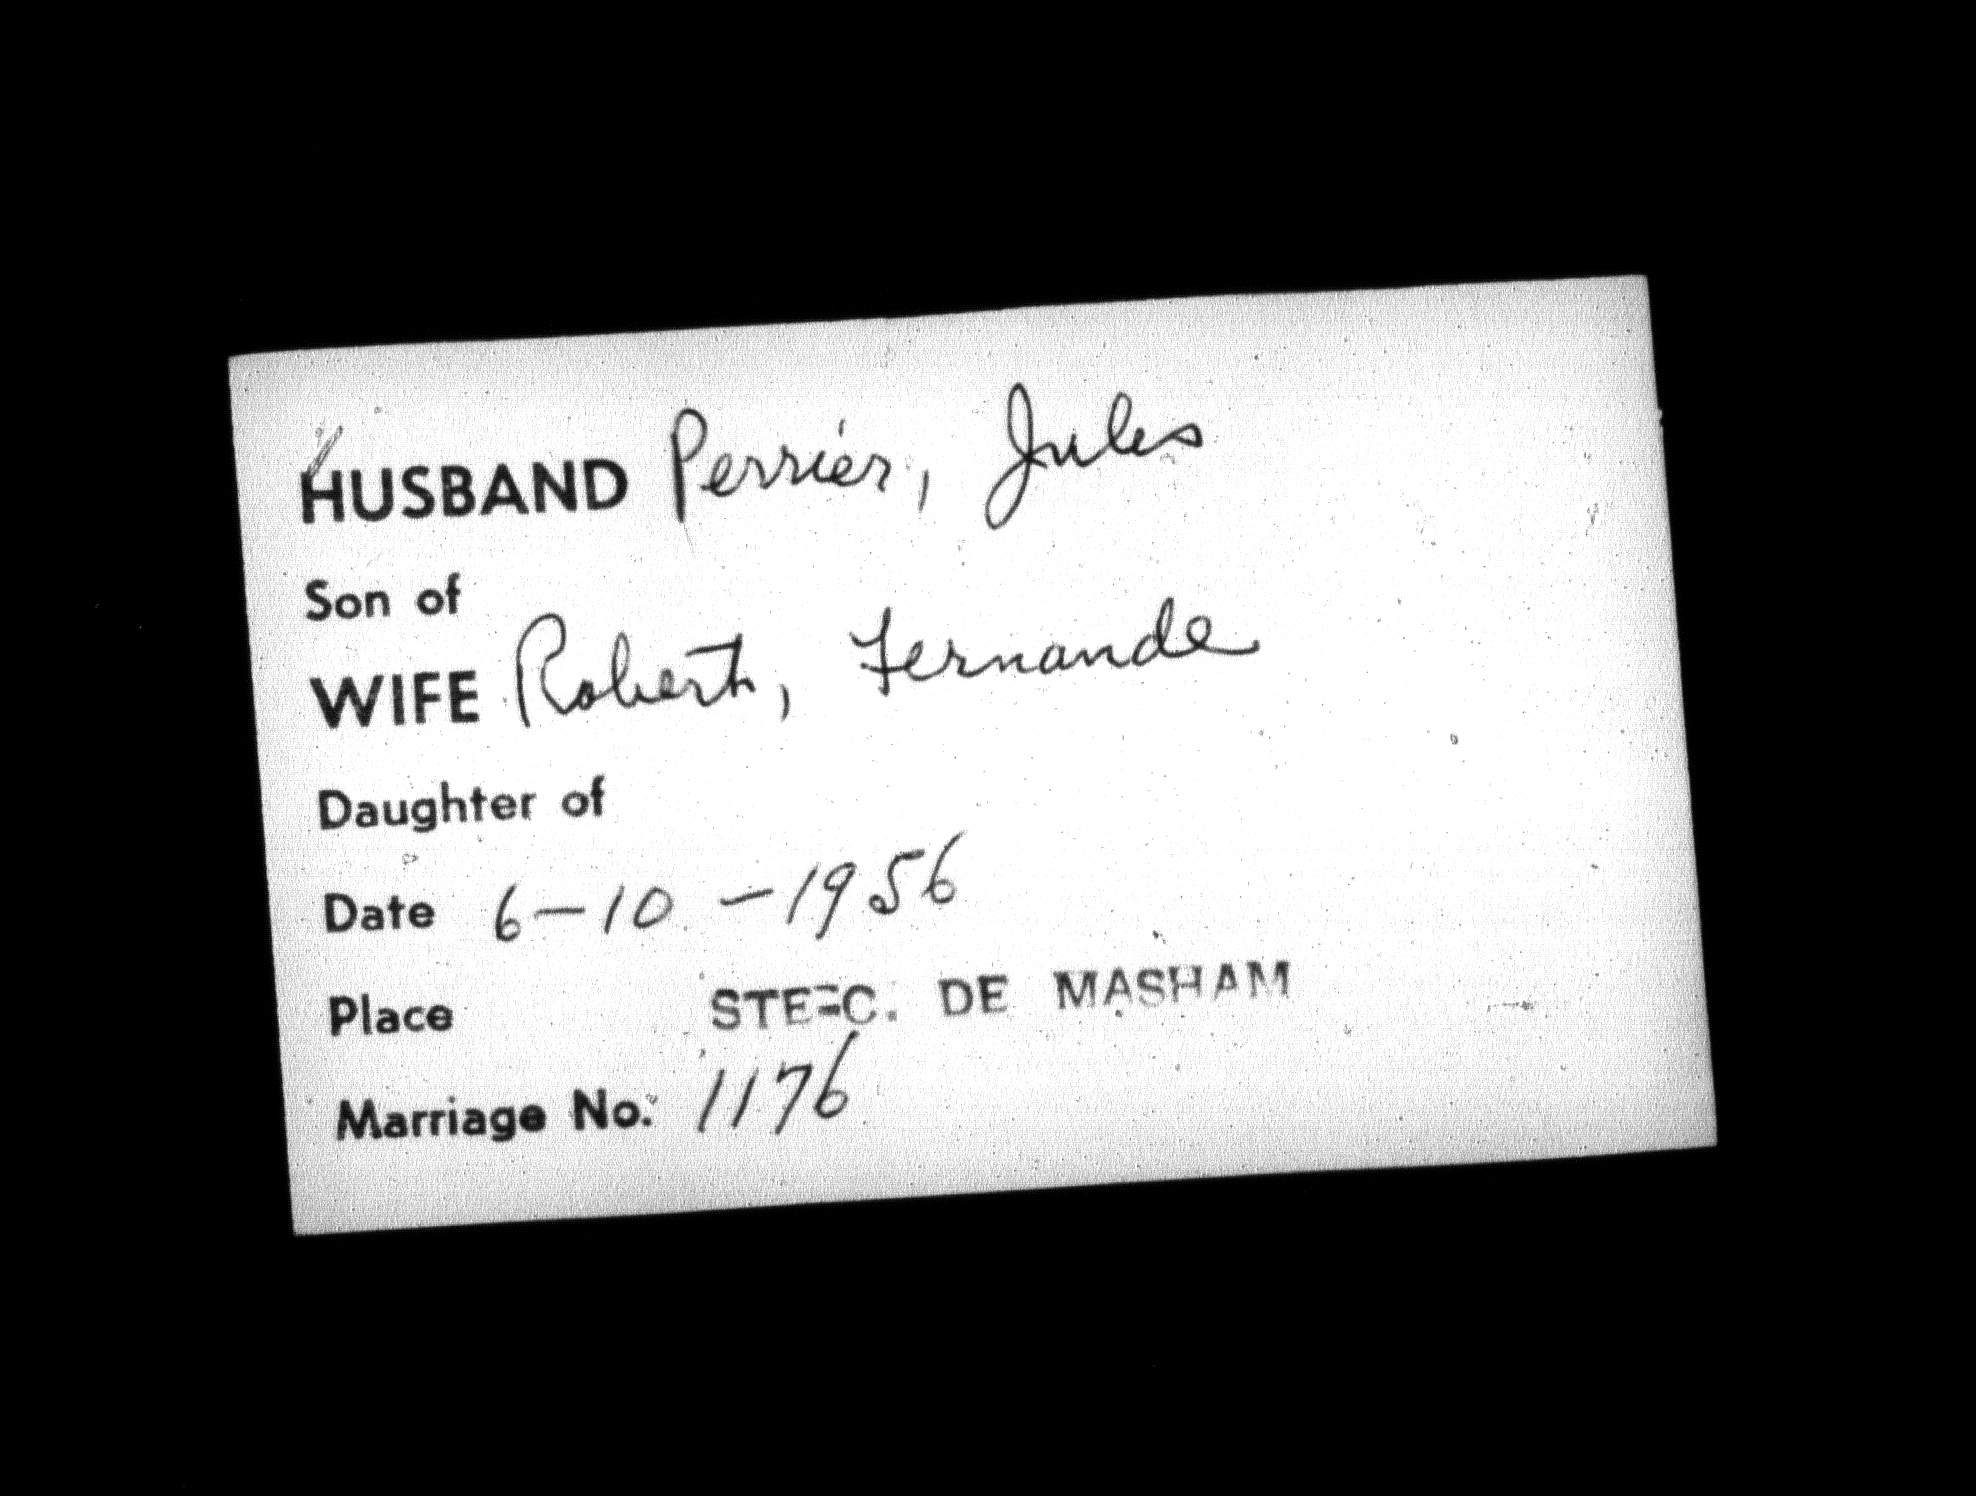 HUSBAND Perrier, Jules
Son of
WIFE Robert, Fernande
Daughter of
Date 6-10-1956
Place STE-C. DE MASHAM
Marriage No. 1176